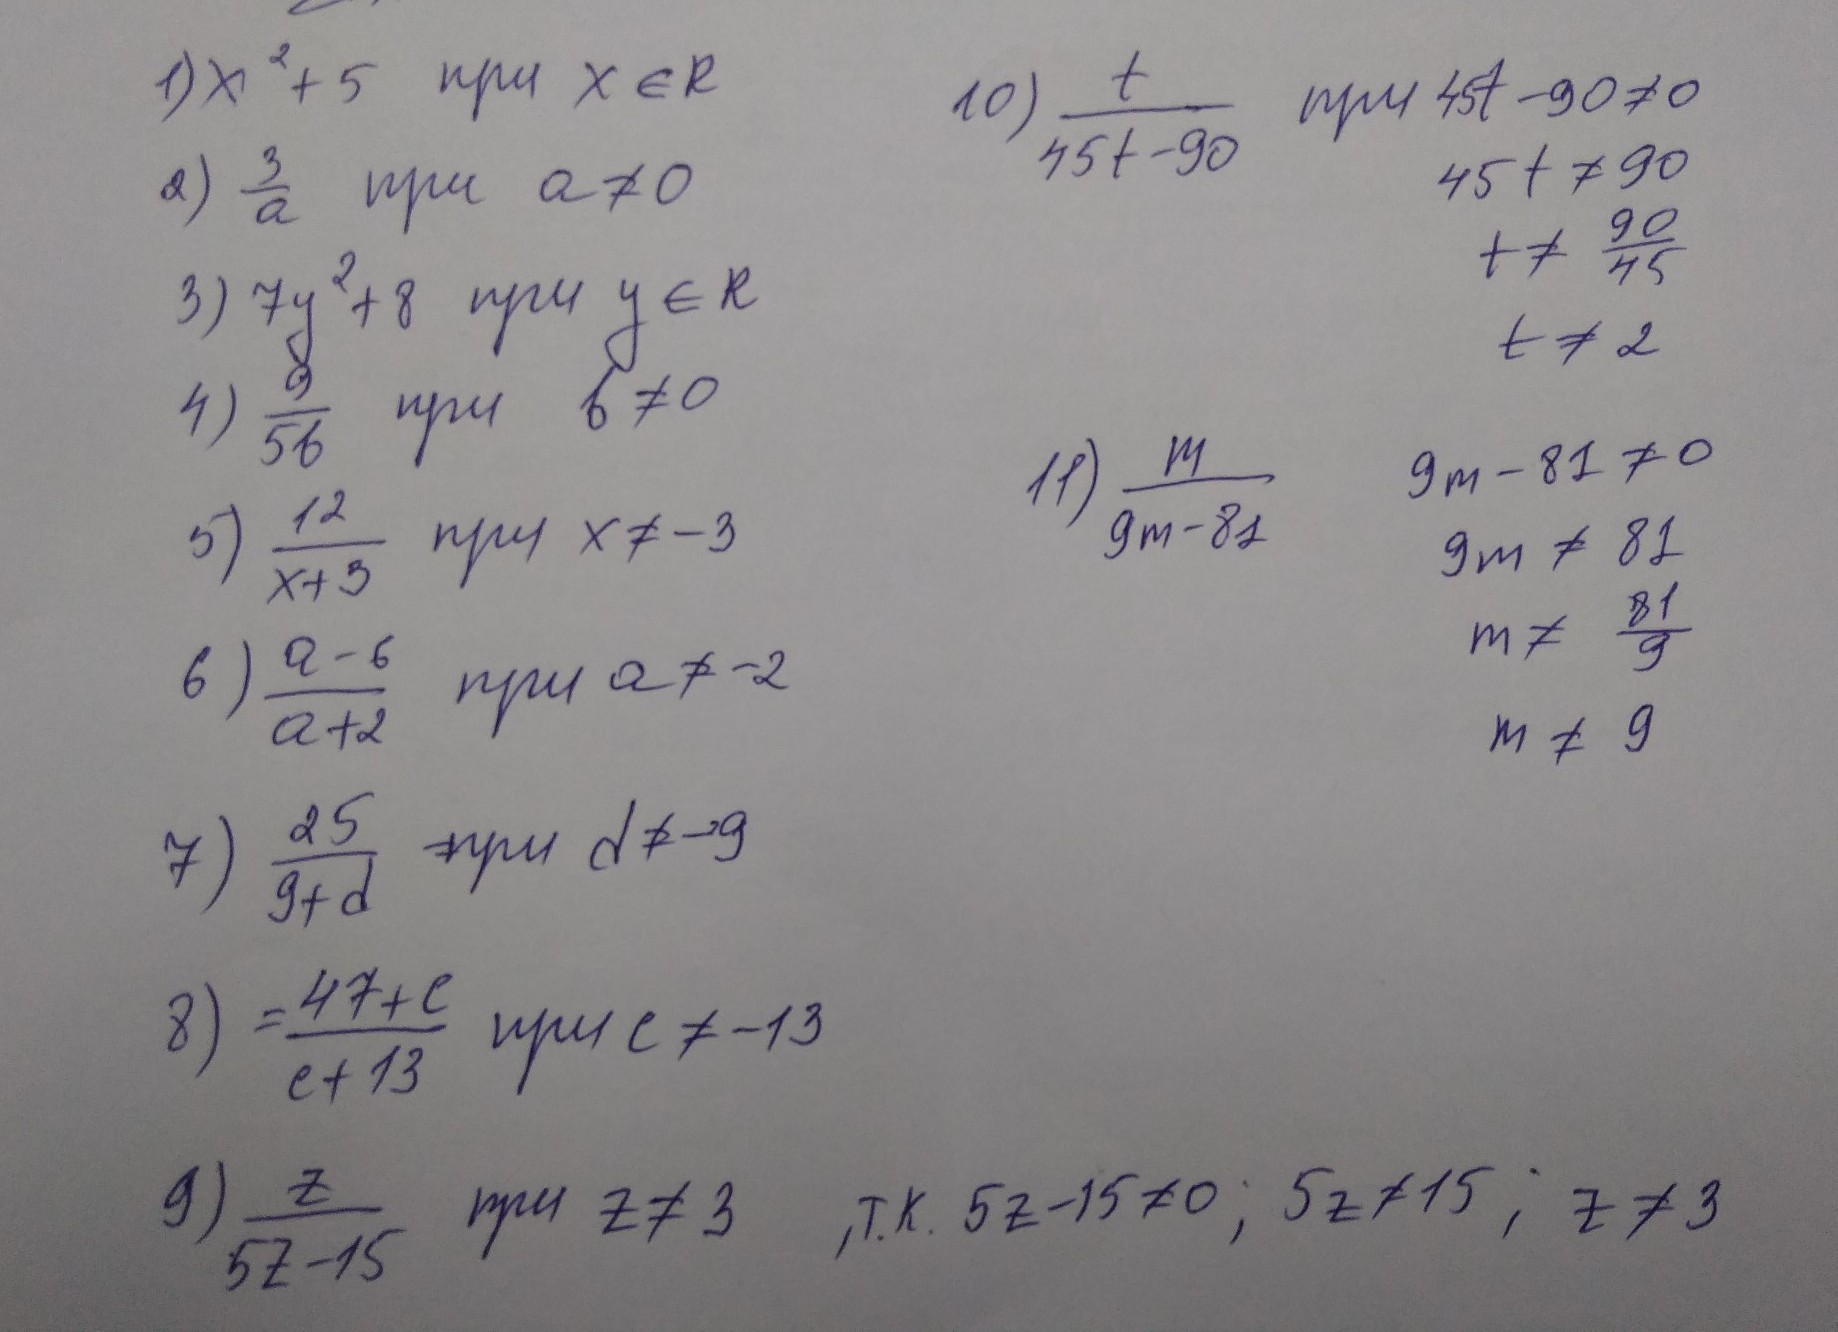 1) x² + 5 при x ∈ R
2) 3/a при a ≠ 0
3) 7y² + 8 при y ∈ R
4) 9/5b при b ≠ 0
5) 12/(x+3) при x ≠ -3
6) (a-6)/(a+2) при a ≠ -2
7) 25/(9+d) при d ≠ -9
8) = (47+c)/(c+13) при c ≠ -13
9) z/(5z-15) при z ≠ 3 , т.к. 5z-15≠0; 5z≠15; z≠3
10) t/(45t-90) при 45t-90≠0
45t ≠ 90
t ≠ 90/45
t ≠ 2
11) m/(9m-81) 9m-81≠0
9m ≠ 81
m ≠ 81/9
m ≠ 9